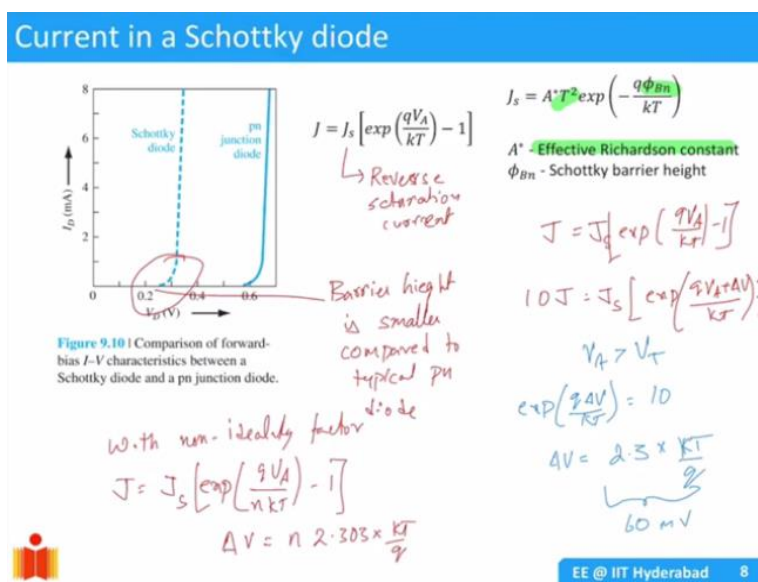 Current in a Schottky diode
8
6
4
2
0
0.2
0.4
0.6
I_D (mA)
V_D (V)
Schottky
diode
pn
junction
diode
Figure 9.10 | Comparison of forward-
bias I–V characteristics between a
Schottky diode and a pn junction diode.
J = J_s [exp(qV_A/kT) − 1]
↳ Reverse
saturation
current
Barrier hieght
is smaller
compared to
typical pn
diode
With non-ideality factor
J = J_s [exp(qV_A/nkT) − 1]
ΔV = n 2.303 × kT/q
J_s = A*T² exp(−qϕ_Bn/kT)
A* - Effective Richardson constant
ϕ_Bn - Schottky barrier height
J = J_s [exp(qV_A/kT) − 1]
10J = J_s [exp(qV_A+ΔV/kT)
V_A > V_T
exp(qΔV/kT) = 10
ΔV = 2.3 × kT/q
60 mV
EE @ IIT Hyderabad 8